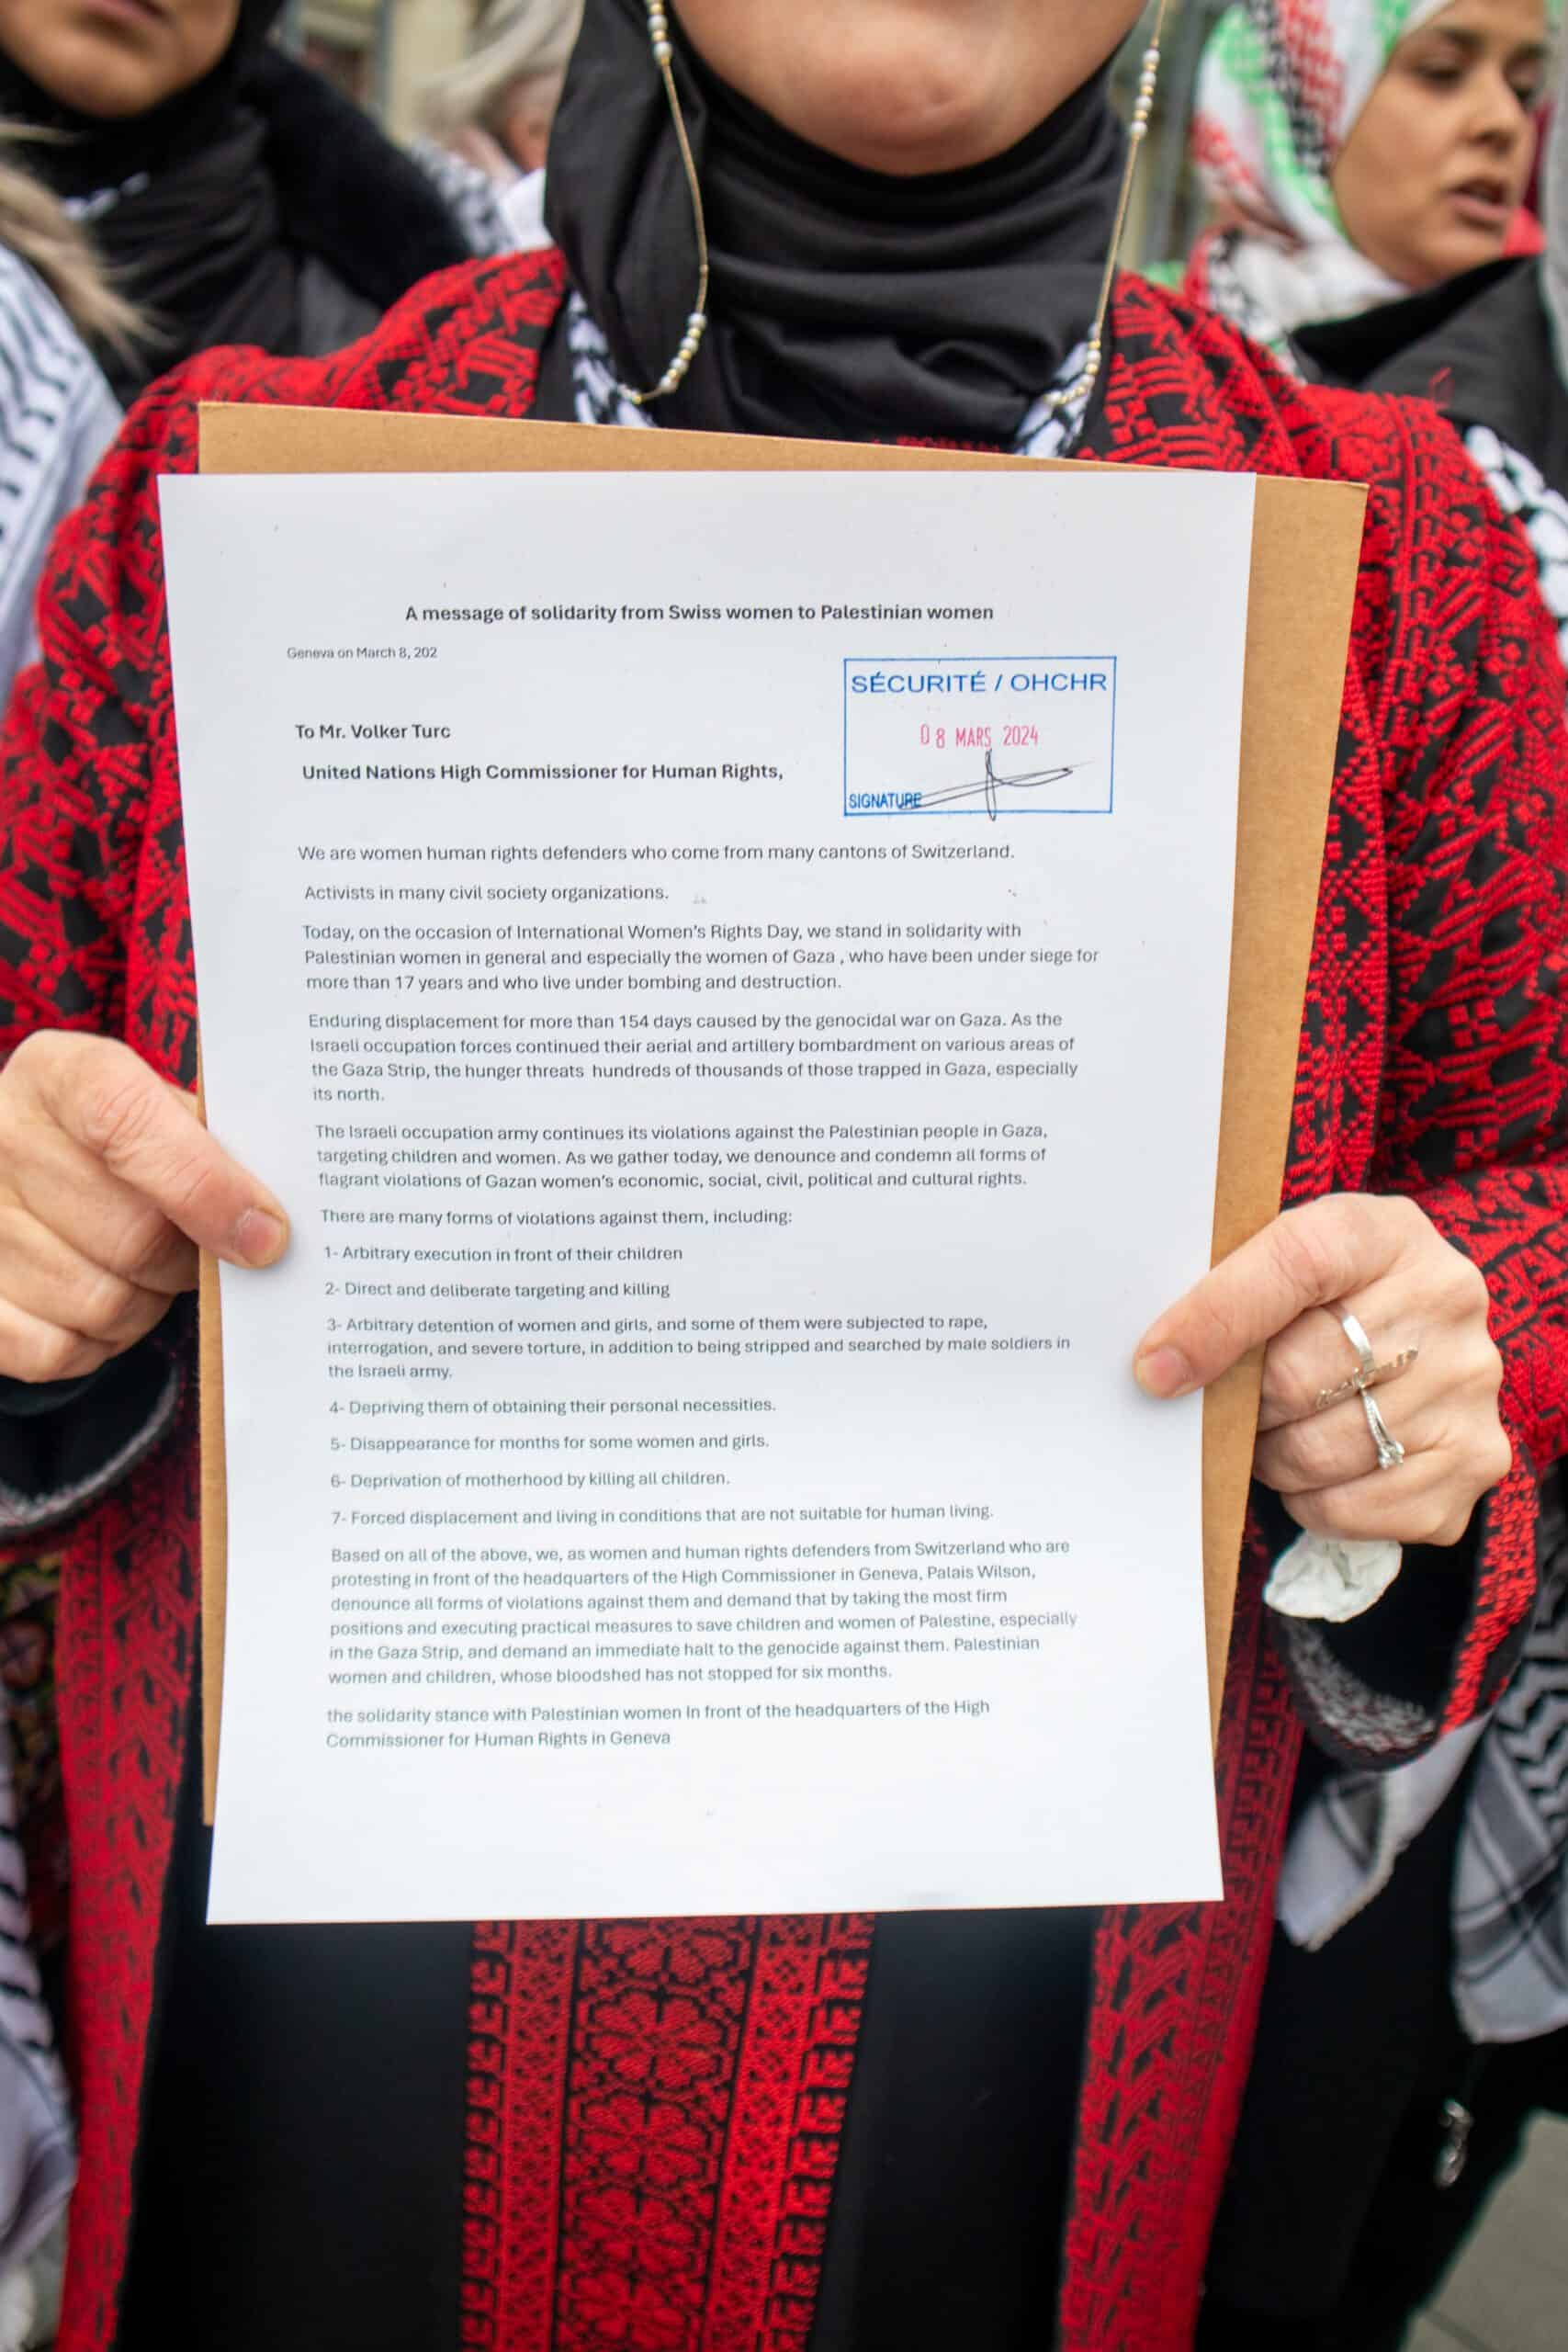 A message of solidarity from Swiss women to Palestinian women
Geneva on March 8, 202
SÉCURITÉ / OHCHR
08 MARS 2024
SIGNATURE
To Mr. Volker Turc
United Nations High Commissioner for Human Rights,
We are women human rights defenders who come from many cantons of Switzerland.
Activists in many civil society organizations.
Today, on the occasion of International Women's Rights Day, we stand in solidarity with
Palestinian women in general and especially the women of Gaza , who have been under siege for
more than 17 years and who live under bombing and destruction.
Enduring displacement for more than 154 days caused by the genocidal war on Gaza. As the
Israeli occupation forces continued their aerial and artillery bombardment on various areas of
the Gaza Strip, the hunger threats hundreds of thousands of those trapped in Gaza, especially
its north.
The Israeli occupation army continues its violations against the Palestinian people in Gaza,
targeting children and women. As we gather today, we denounce and condemn all forms of
flagrant violations of Gazan women's economic, social, civil, political and cultural rights.
There are many forms of violations against them, including:
1- Arbitrary execution in front of their children
2- Direct and deliberate targeting and killing
3- Arbitrary detention of women and girls, and some of them were subjected to rape,
interrogation, and severe torture, in addition to being stripped and searched by male soldiers in
the Israeli army.
4- Depriving them of obtaining their personal necessities.
5- Disappearance for months for some women and girls.
6- Deprivation of motherhood by killing all children.
7- Forced displacement and living in conditions that are not suitable for human living.
Based on all of the above, we, as women and human rights defenders from Switzerland who are
protesting in front of the headquarters of the High Commissioner in Geneva, Palais Wilson,
denounce all forms of violations against them and demand that by taking the most firm
positions and executing practical measures to save children and women of Palestine, especially
in the Gaza Strip, and demand an immediate halt to the genocide against them. Palestinian
women and children, whose bloodshed has not stopped for six months.
the solidarity stance with Palestinian women In front of the headquarters of the High
Commissioner for Human Rights in Geneva